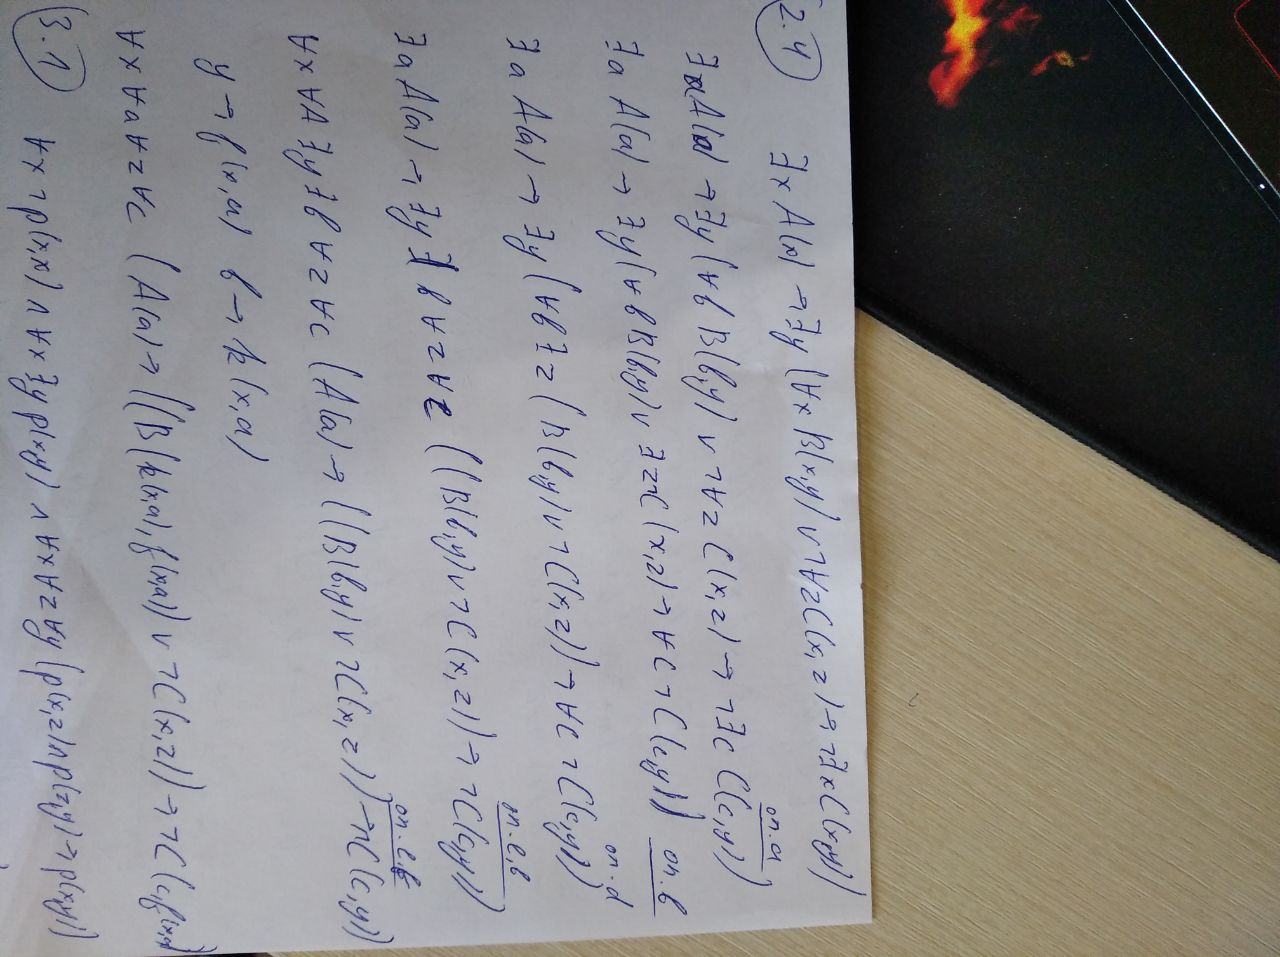 2.4
∃x A(x) → ∃y (∀x B(x,y) ∨ ¬∀z C(x,z) → ¬∃x C(x,y))
∃a A(a) → ∃y (∀b B(b,y) ∨ ¬∀z C(x,z) → ¬∃c C(c,y)) on. a
∃a A(a) → ∃y (∀b B(b,y) ∨ ∃z¬C(x,z) → ∀c ¬C(c,y)) on. b
∃a A(a) → ∃y (∀b ∃z (B(b,y) ∨ ¬C(x,z)) → ∀c ¬C(c,y)) on. d
∃a A(a) → ∃y ∃b ∀z ∀c ((B(b,y) ∨ ¬C(x,z)) → ¬C(c,y)) on. e,b
∀x ∀a ∃y ∃b ∀z ∀c (A(a) → ((B(b,y) ∨ ¬C(x,z)) → ¬C(c,y)) on. e,b
y → f(x,a) b → k(x,a)
∀x ∀a ∀z ∀c (A(a) → ((B(k(x,a), f(x,a)) ∨ ¬C(x,z)) → ¬C(c,f(x,a))
3.1
∀x ¬p(x,x) ∧ ∀x ∃y p(x,y) ∧ ∀x ∀z ∀y (p(x,z) ∧ p(z,y) → p(x,y))